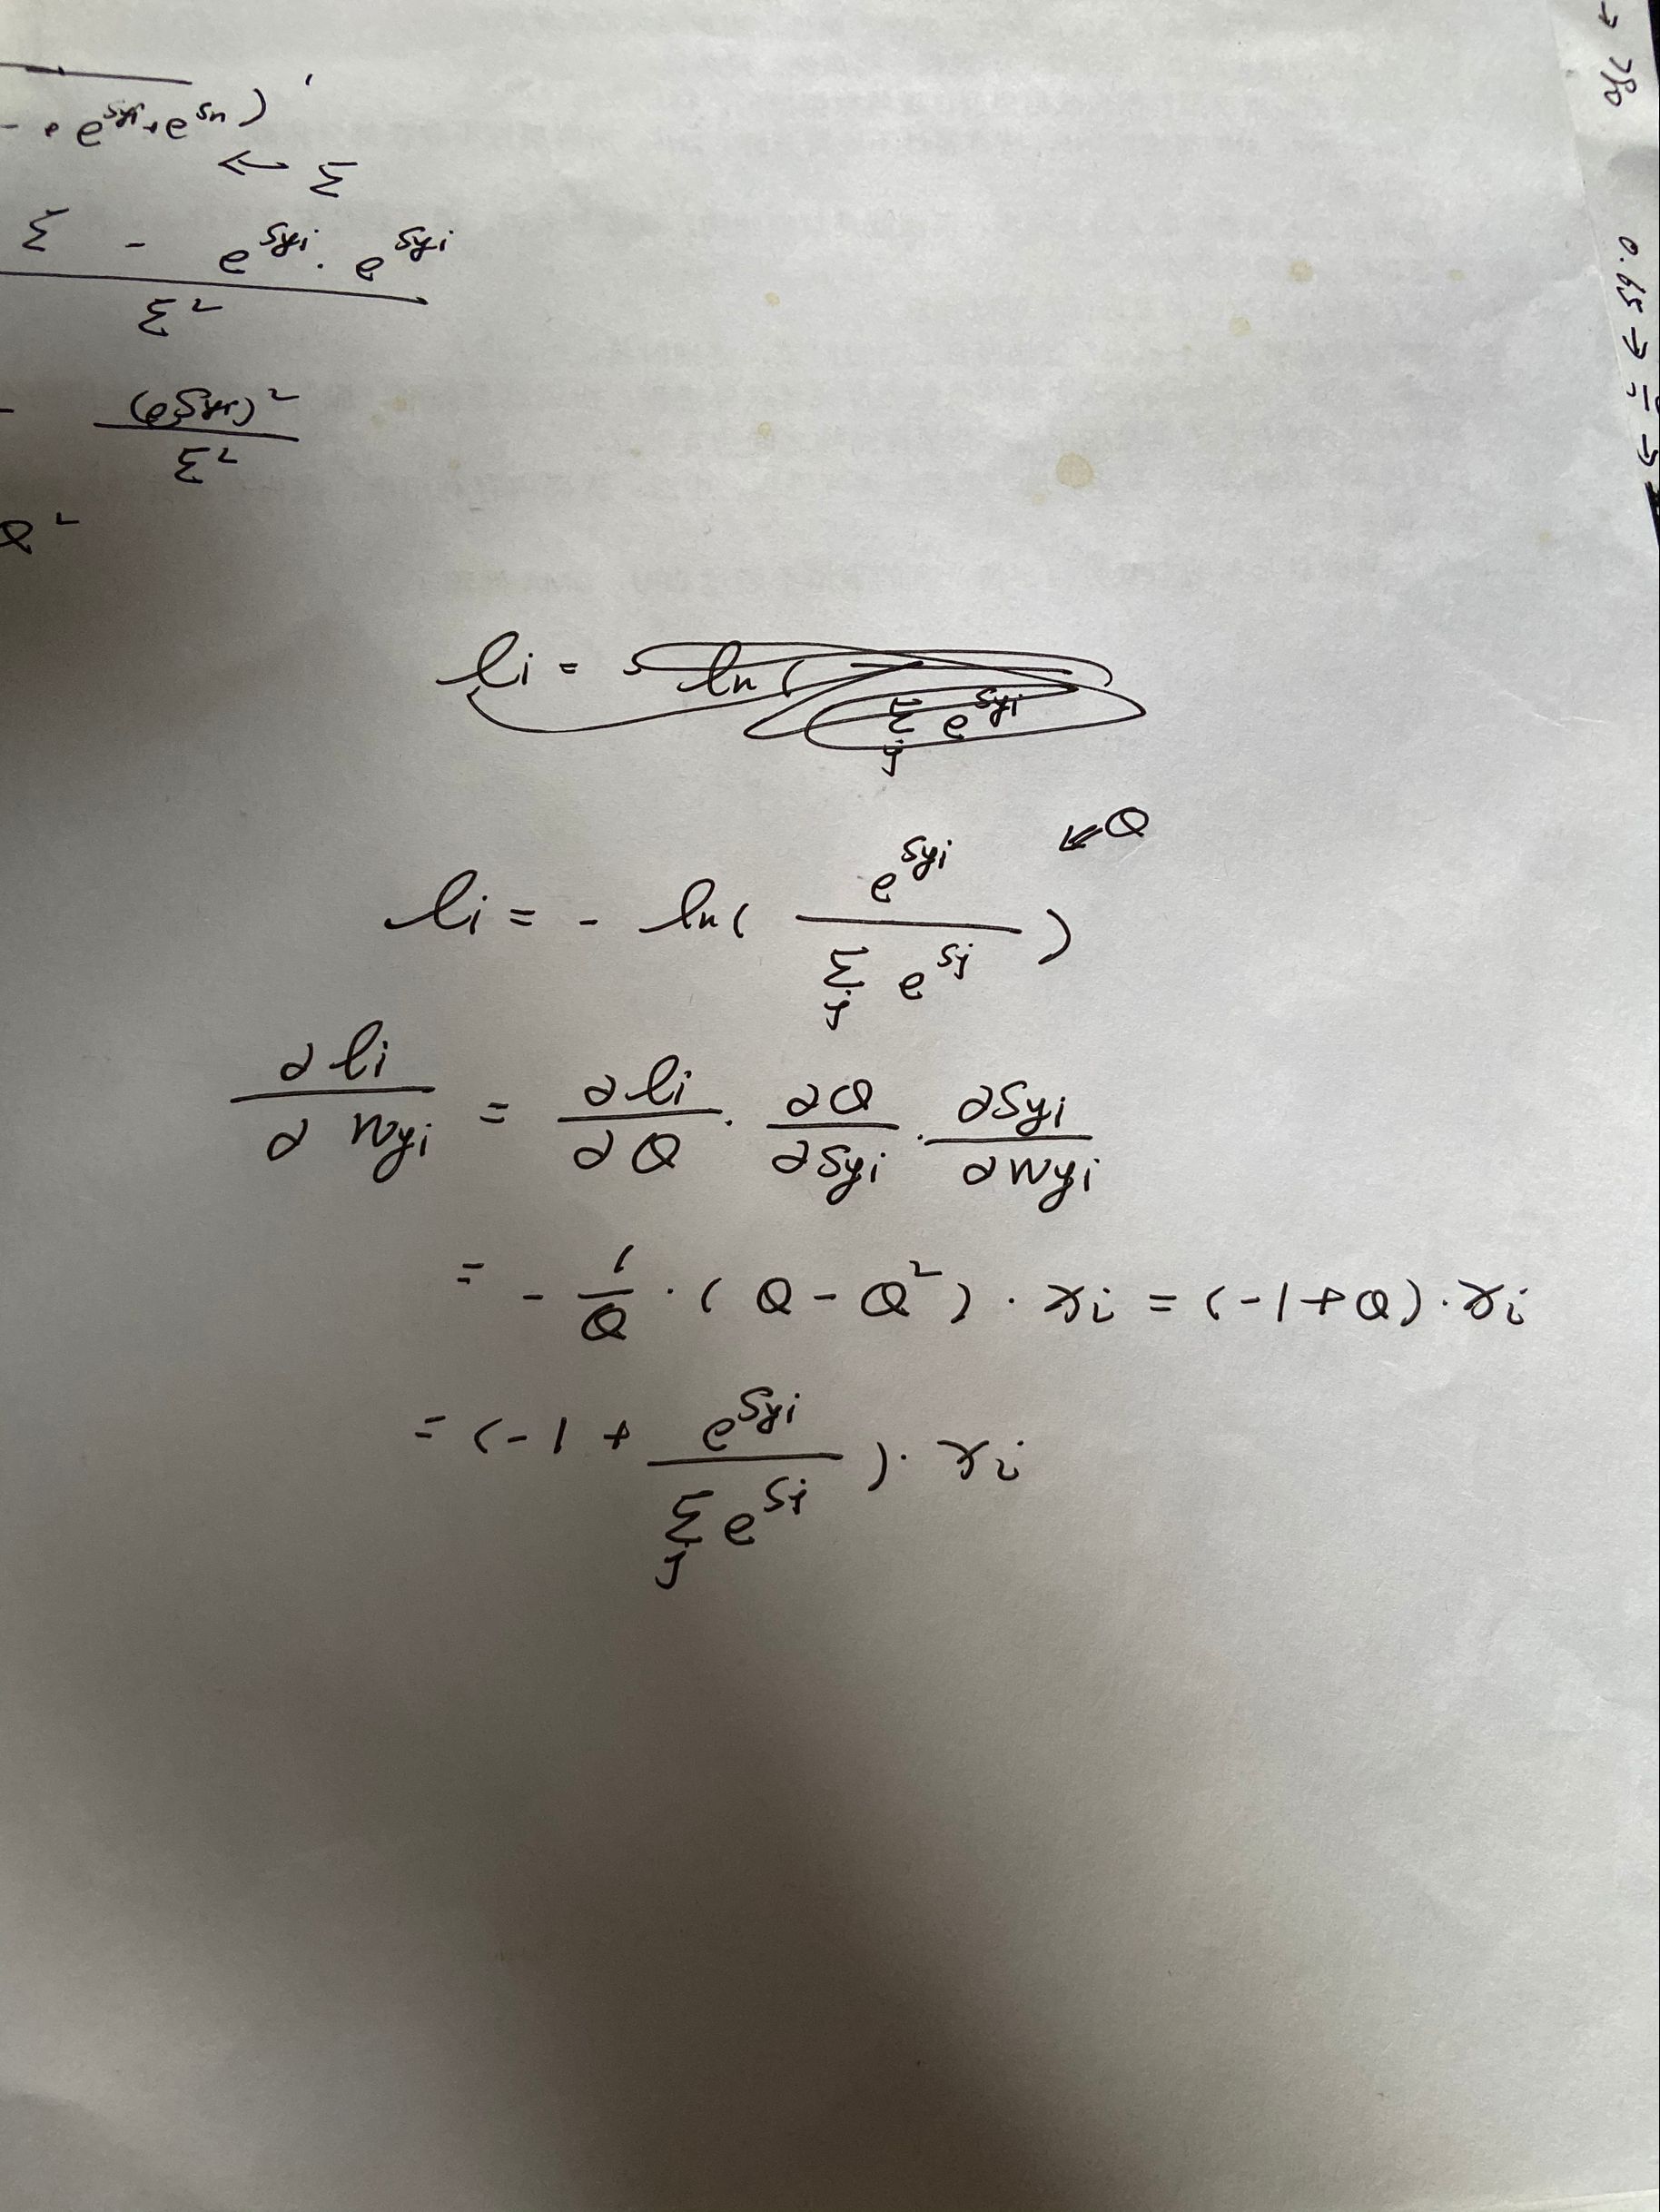 - + e^{Syi} + e^{Sn} ) '
⇐ Σ
Σ - e^{Syi} · e^{Syi}
Σ²
- (e^{Syi})²
Σ²
Q²
li = ln(
Σ_j e^{Syi}
⇙ Q
li = - ln( e^{Syi} / Σ_j e^{Sj} )
∂li / ∂Wyi = ∂li / ∂Q · ∂Q / ∂Syi · ∂Syi / ∂Wyi
= - 1/Q · ( Q - Q² ) · xi = (-1+Q) · xi
= (-1 + e^{Syi} / Σ_j e^{Sj} ) · xi
0.65 → →